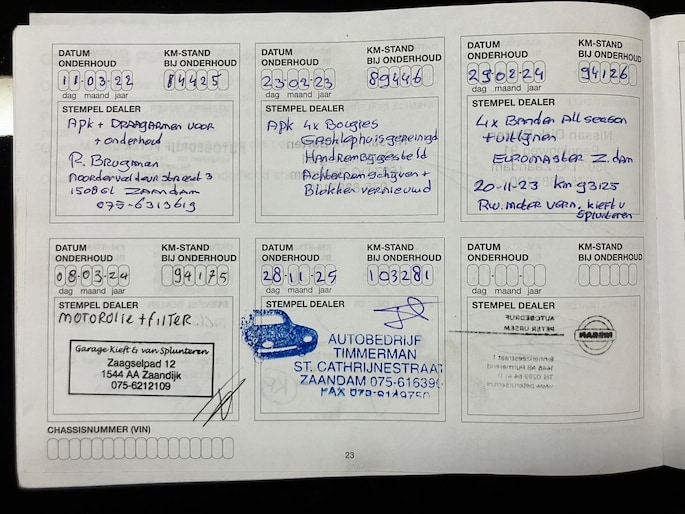 DATUM ONDERHOUD
KM-STAND BIJ ONDERHOUD
11-03-22
84425
dag maand jaar
STEMPEL DEALER
Apk + DRAAGARMEN VOOR
+ onderhoud
R. Brugman
Noordervaldeurstraat 3
1506GL ZAANDAM
075-6313619
DATUM ONDERHOUD
KM-STAND BIJ ONDERHOUD
23-02-23
89446
dag maand jaar
STEMPEL DEALER
Apk 4x Bougies
Gasklephuis gereinigd
Handrem bijgesteld
Achterremschijven +
Blokken vernieuwd
DATUM ONDERHOUD
KM-STAND BIJ ONDERHOUD
29-02-24
94126
dag maand jaar
STEMPEL DEALER
4x Banden All season
+ uitlijnen
EUROMASTER Z.dam
20-11-23 km 93125
R.W. motor vern. Kieft v
Splunteren
DATUM ONDERHOUD
KM-STAND BIJ ONDERHOUD
08-03-24
94175
dag maand jaar
STEMPEL DEALER
MOTOROLIE + FILTER
Garage Kieft & van Splunteren
Zaagselpad 12
1544 AA Zaandijk
075-6212109
DATUM ONDERHOUD
KM-STAND BIJ ONDERHOUD
28-11-25
103281
dag maand jaar
STEMPEL DEALER
AUTOBEDRIJF
TIMMERMAN
ST. CATHRIJNESTRAAT
ZAANDAM 075-61639
FAX 075-6149750
DATUM ONDERHOUD
KM-STAND BIJ ONDERHOUD
dag maand jaar
STEMPEL DEALER
AUTOBEDRIJF
PETER URSEM
NISSAN
CHASSISNUMMER (VIN)
23